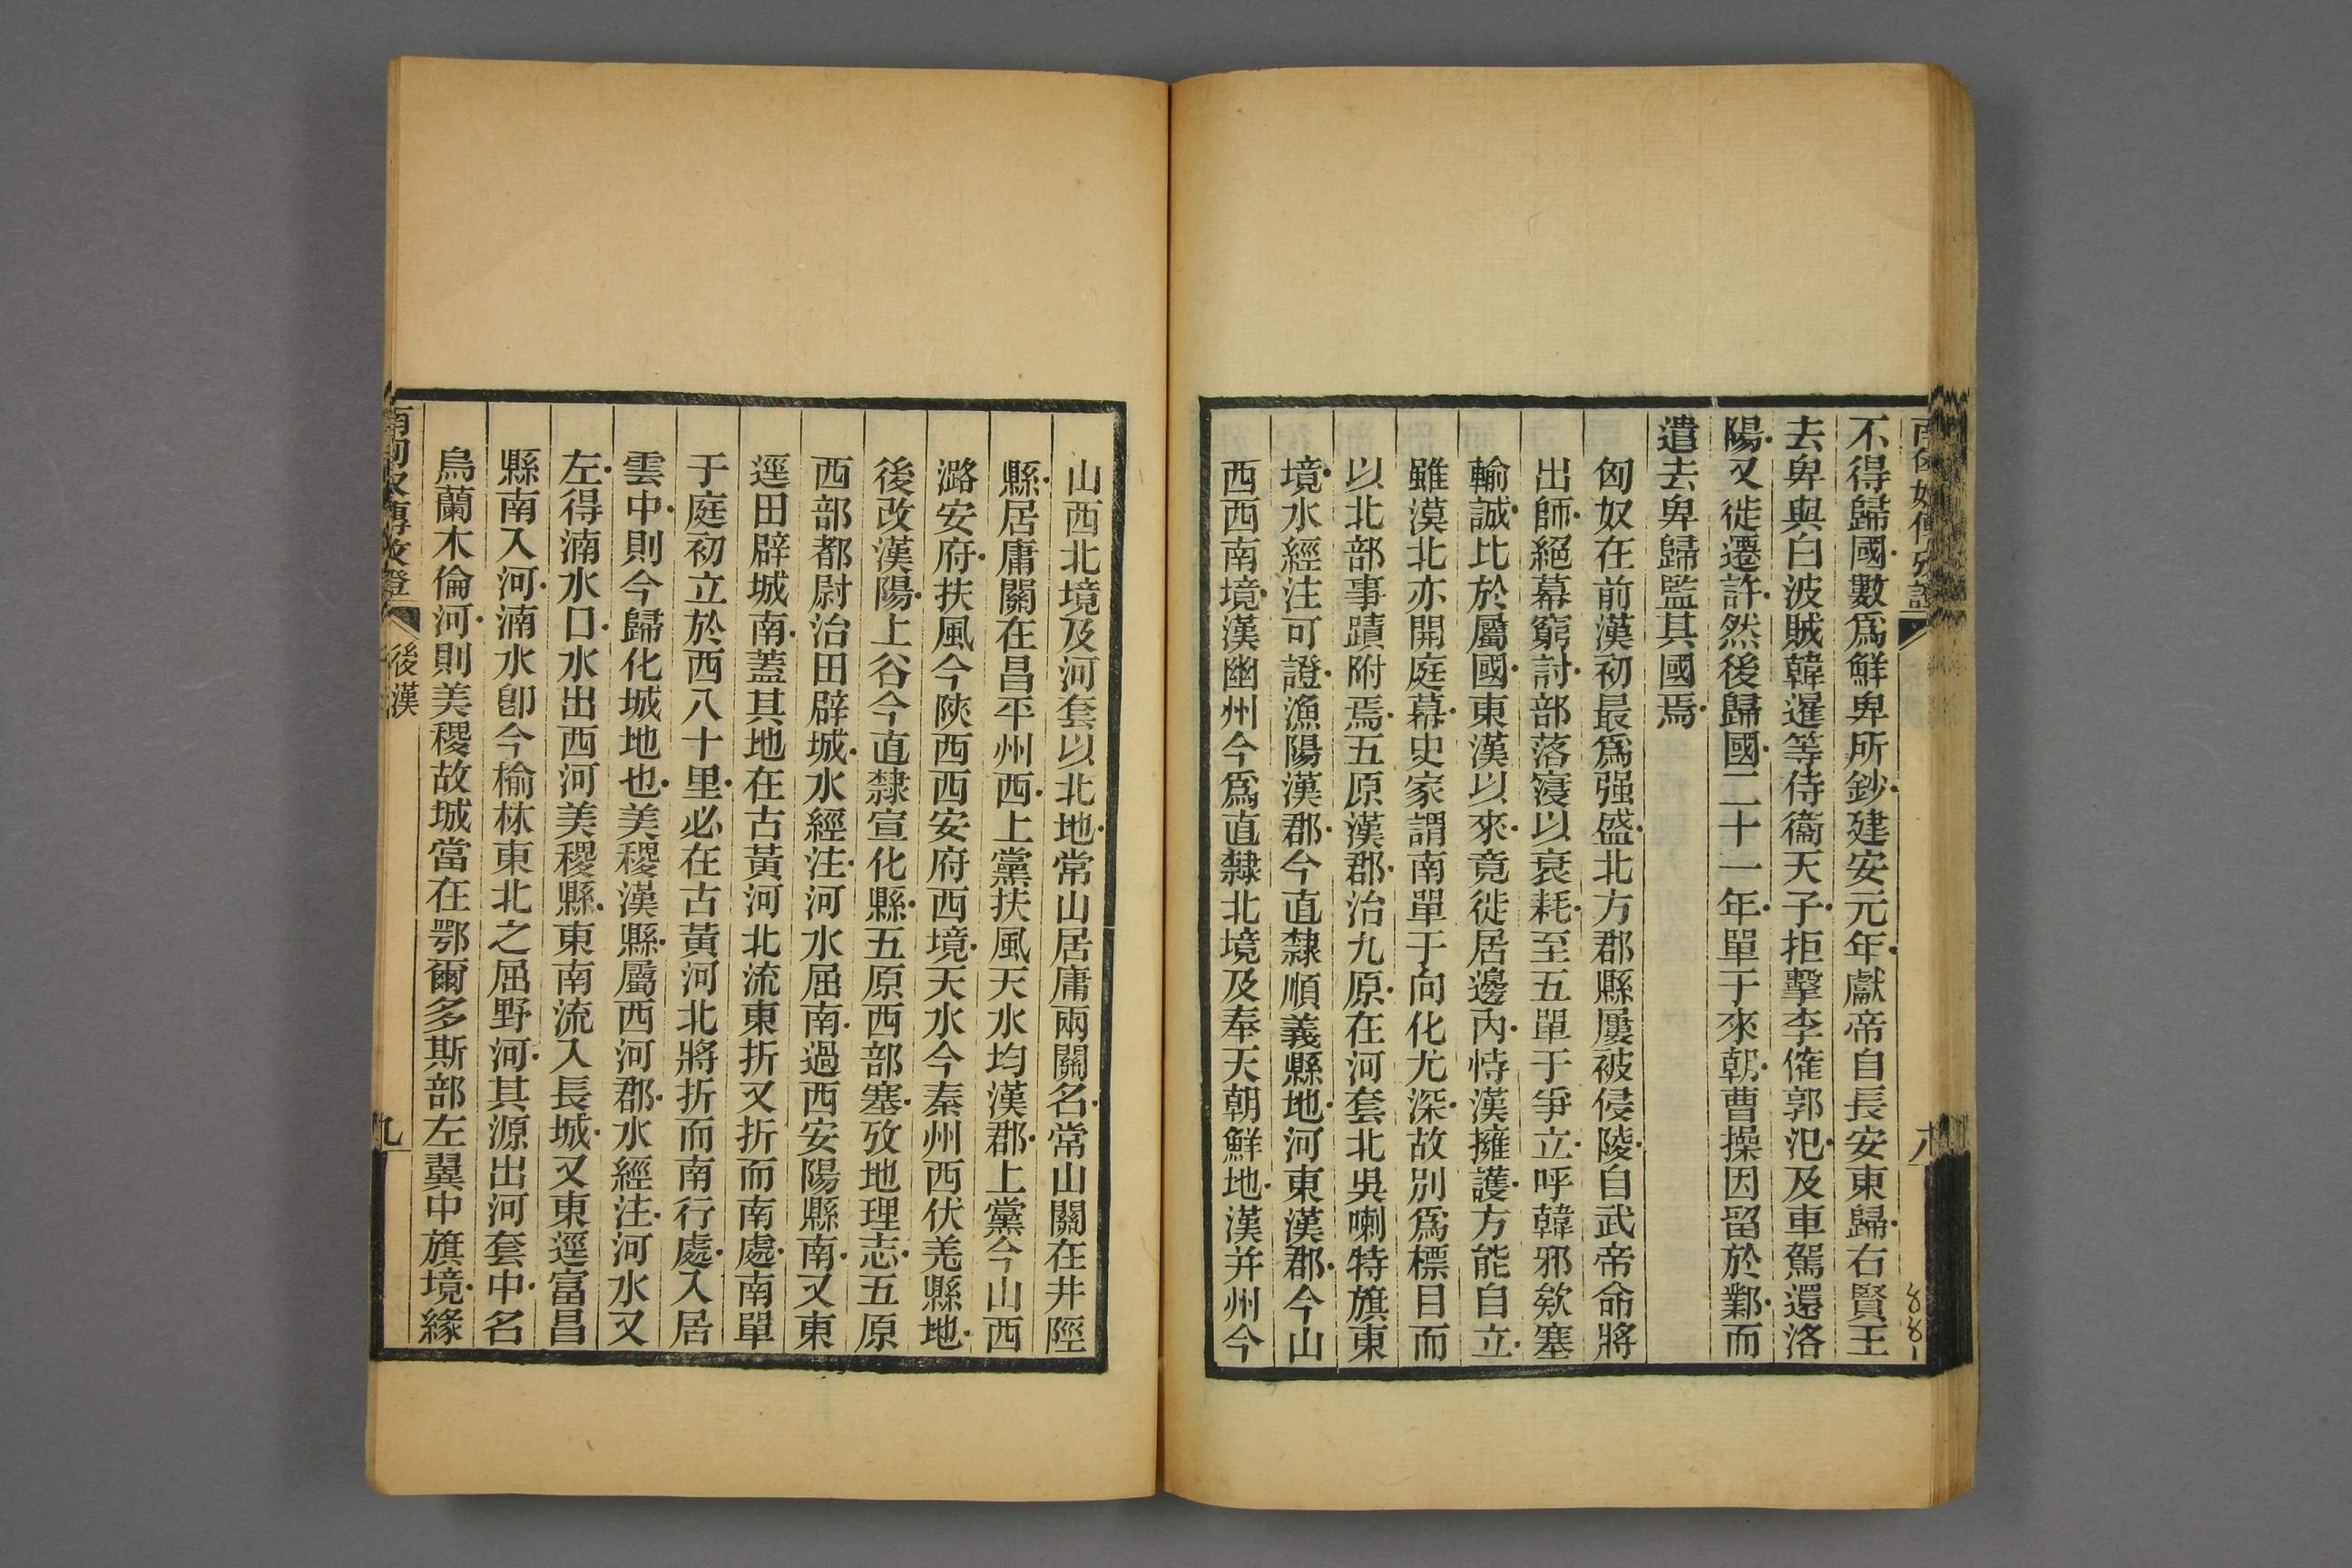 不得歸國數爲鮮卑所鈔建安元年獻帝自長安東歸右賢王
去卑與白波賊韓暹等侍衞天子拒擊李傕郭汜及車駕還洛
陽又徙遷許然後歸國二十一年單于來朝曹操因留於鄴而
遣去卑歸監其國焉
匈奴在前漢初最爲强盛北方郡縣屢被侵陵自武帝命將
出師絕幕窮討部落寖以衰耗至五單于爭立呼韓邪欵塞
輸誠比於屬國東漢以來竟徙居邊內恃漢擁護方能自立
雖漠北亦開庭幕史家謂南單于向化尤深故別爲標目而
以北部事蹟附焉五原漢郡治九原在河套北吳喇特旗東
境水經注可證漁陽漢郡今直隸順義縣地河東漢郡今山
西西南境漢幽州今爲直隸北境及奉天朝鮮地漢并州今
八
881
山西北境及河套以北地常山居庸兩關名常山關在井陘
縣居庸關在昌平州西上黨扶風天水均漢郡上黨今山西
潞安府扶風今陝西西安府西境天水今秦州西伏羌縣地
後改漢陽上谷今直隸宣化縣五原西部塞攷地理志五原
西部都尉治田辟城水經注河水屈南過西安陽縣南又東
逕田辟城南蓋其地在古黃河北流東折又折而南處南單
于庭初立於西八十里必在古黃河北將折而南行處入居
雲中則今歸化城地也美稷漢縣屬西河郡水經注河水又
左得湳水口水出西河美稷縣東南流入長城又東逕富昌
縣南入河湳水卽今榆林東北之屈野河其源出河套中名
烏蘭木倫河則美稷故城當在鄂爾多斯部左翼中旗境緣
後漢
九